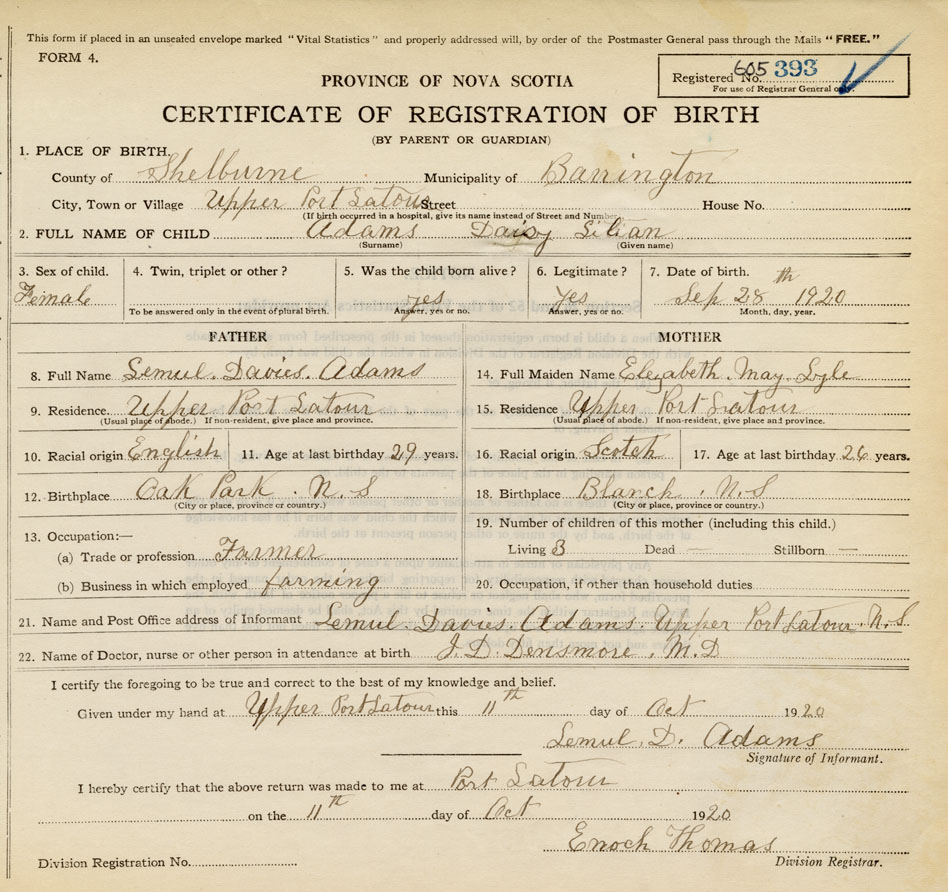 This form if placed in an unsealed envelope marked "Vital Statistics" and properly addressed will, by order of the Postmaster General pass through the Mails "FREE."
FORM 4.
605 393
Registered No.
For use of Registrar General only.
PROVINCE OF NOVA SCOTIA
CERTIFICATE OF REGISTRATION OF BIRTH
(BY PARENT OR GUARDIAN)
1. PLACE OF BIRTH.
County of Shelburne Municipality of Barrington
City, Town or Village Upper Port Latour Street House No.
(If birth occurred in a hospital, give its name instead of Street and Number
2. FULL NAME OF CHILD Adams Daisy Lilian
(Surname) (Given name)
3. Sex of child. 4. Twin, triplet or other? 5. Was the child born alive? 6. Legitimate? 7. Date of birth.
Female yes yes Sep 28th 1920
To be answered only in the event of plural birth. Answer, yes or no. Answer, yes or no. Month, day, year.
FATHER MOTHER
8. Full Name Lemul. Davies. Adams 14. Full Maiden Name Elezabeth May Lyle
9. Residence. Upper Port Latour 15. Residence Upper Port Latour
(Usual place of abode.) If non-resident, give place and province. (Usual place of abode.) If non-resident, give place and province.
10. Racial origin English 11. Age at last birthday 29 years. 16. Racial origin Scotch 17. Age at last birthday 26 years.
12. Birthplace Oak Park. N.S 18. Birthplace Blanch. N.S
(City or place, province or country.) (City or place, province or country.)
19. Number of children of this mother (including this child.)
13. Occupation:—
(a) Trade or profession Farmer Living 3 Dead — Stillborn —
(b) Business in which employed farming 20. Occupation, if other than household duties
21. Name and Post Office address of Informant Lemul. Davies. Adams. Upper Port Latour. N.S.
22. Name of Doctor, nurse or other person in attendance at birth J. D. Densmore. M.D
I certify the foregoing to be true and correct to the best of my knowledge and belief.
Given under my hand at Upper Port Latour this 11th day of Oct 1920
Lemul. D. Adams
Signature of Informant.
I hereby certify that the above return was made to me at Port Latour
on the 11th day of Oct 1920
Enoch Thomas
Division Registration No. Division Registrar.